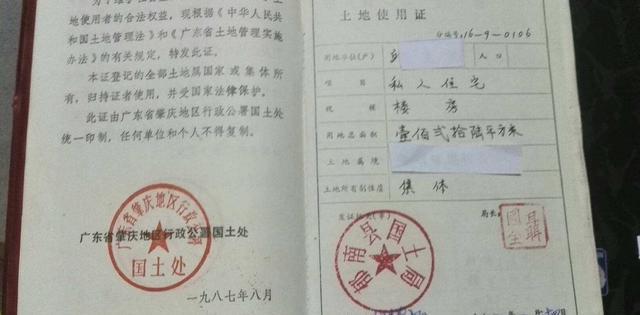 地使用者的合法权益，现根据《中华人民共
和国土地管理法》和《广东省土地管理实施
办法》的有关规定，特发此证。
本证登记的全部土地属国家或集体所
有，归持证者使用，并受国家法律保护。
此证由广东省肇庆地区行政公署国土处
统一印制，任何单位和个人不得复制。
广东省肇庆地区行政公署国土处
国土处
一九八七年八月
土地使用证
16-9-0106
用地单位(户)
人口
项目
私人住宅
楼房
用地总面积
壹佰弍拾陆平方米
土地属境
土地所有制性质
集体
发证机关(章)
局长
县国土局